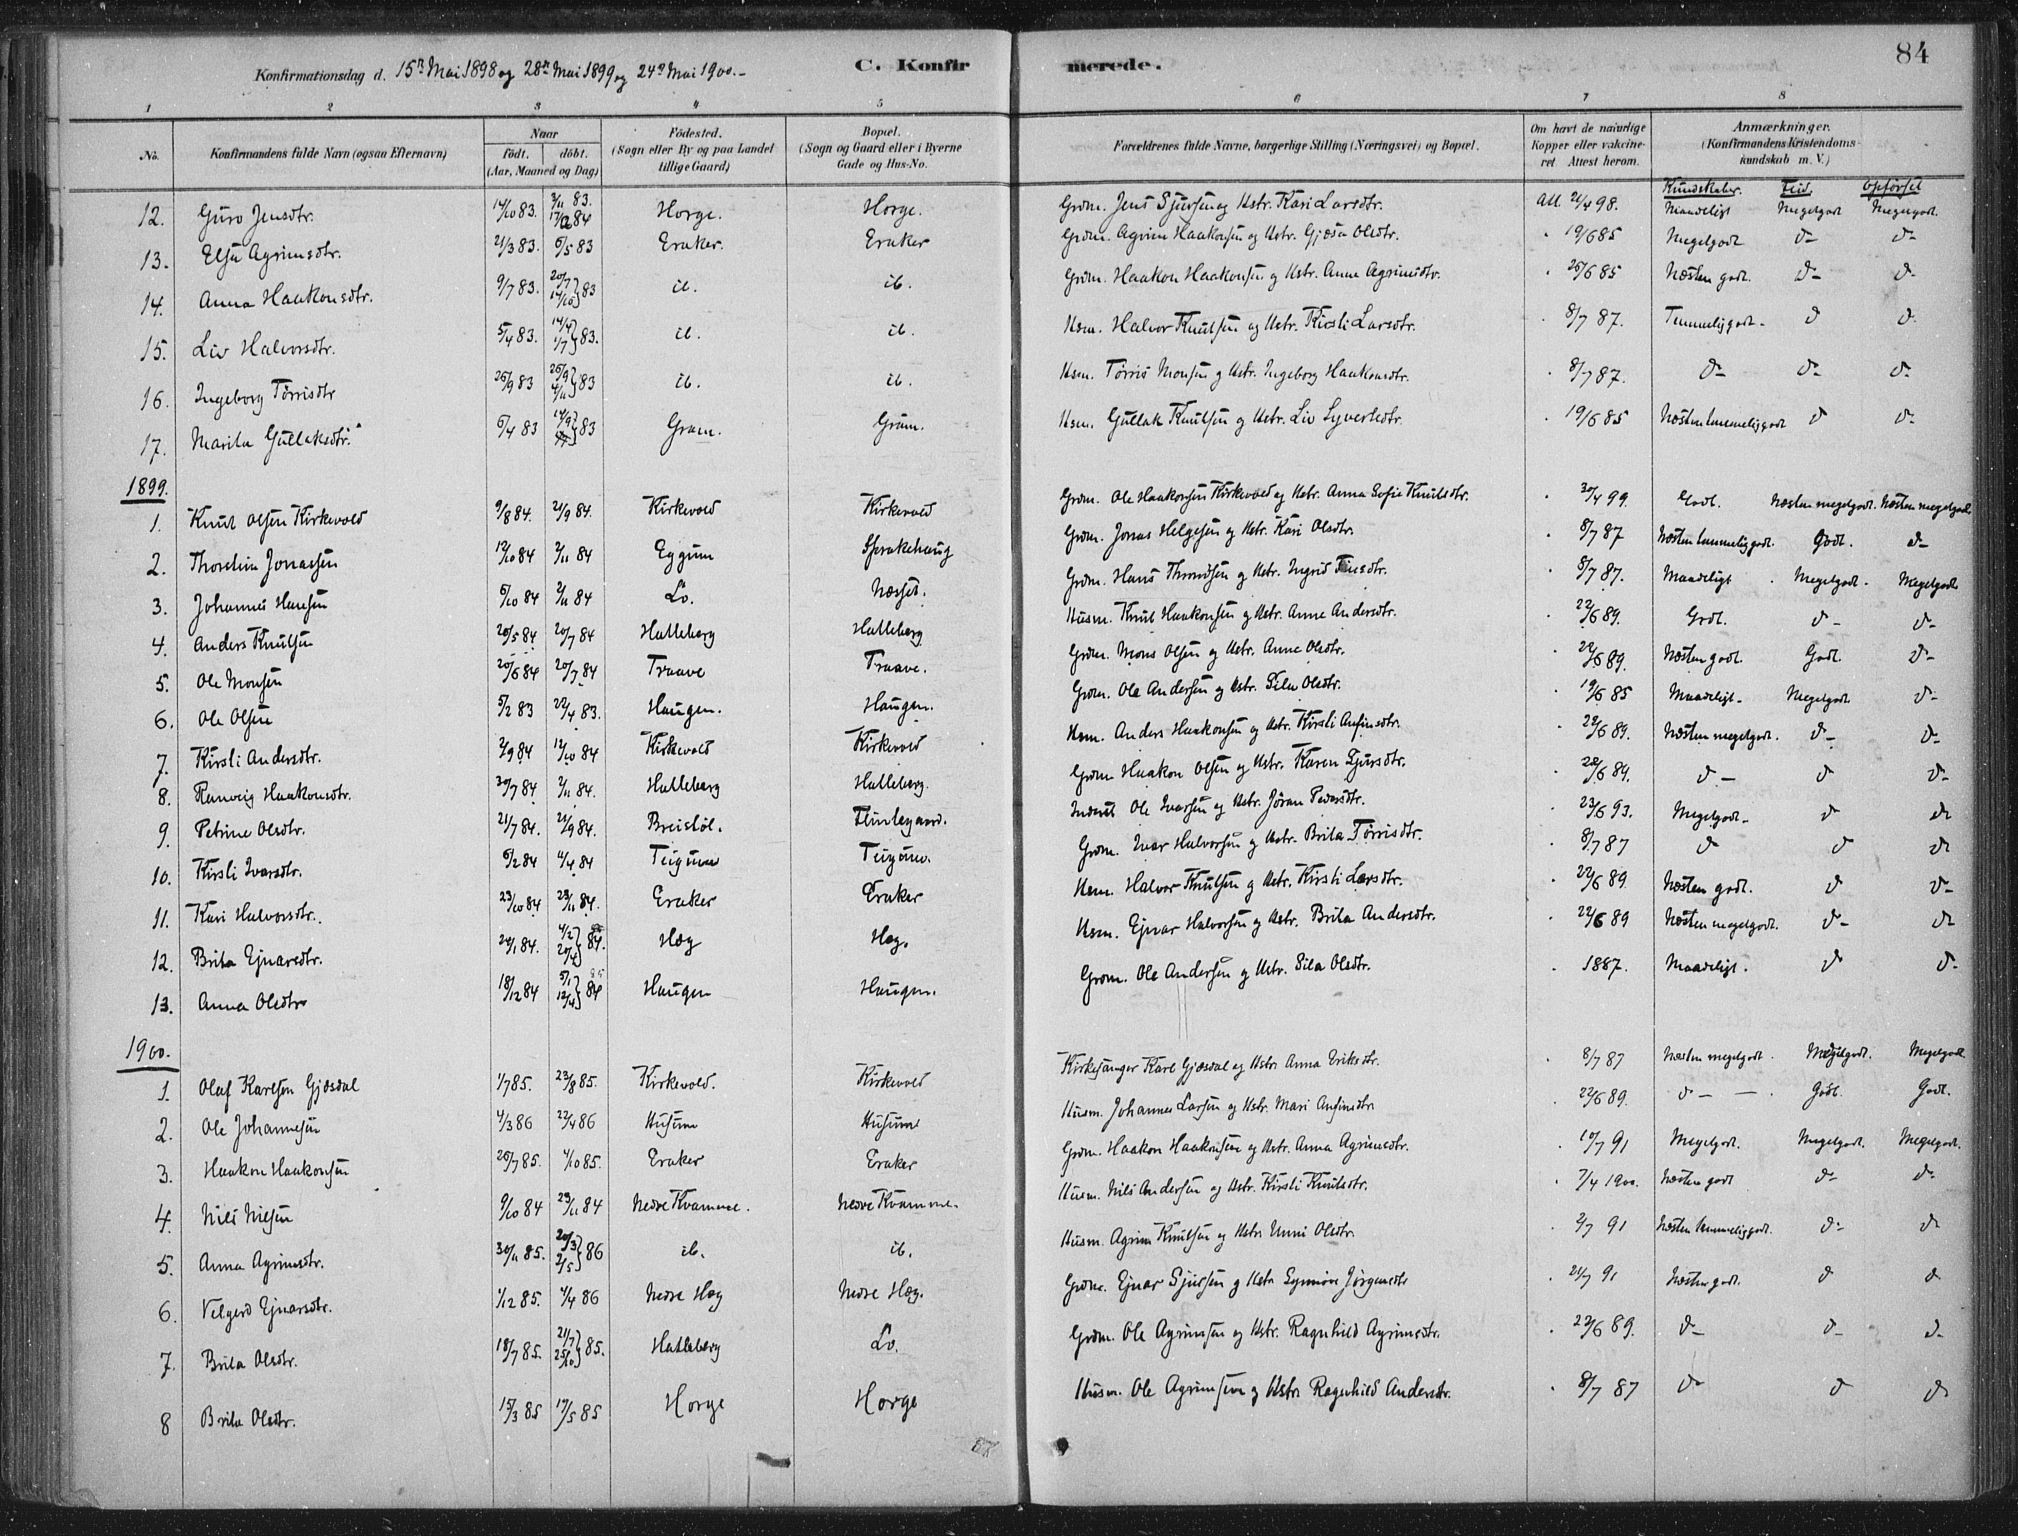 84
Konfirmationsdag d. 15de Mai 1898 og 28de Mai 1899 og 24de Mai 1900.-
C. Konfirmerede.
1 2 3 4 5 6 7 8
No. Konfirmandens fulde Navn (ogsaa Efternavn) Naar født. døbt. (Aar, Maaned og Dag) Fødested. (Sogn eller By og paa Landet tillige Gaard) Bopæl. (Sogn og Gaard eller i Byerne Gade og Hus-No. Forældrenes fulde Navne, borgerlige Stilling (Næringsvei) og Bopæl. Om havt de naturlige Kopper eller vakcineret Attest herom. Anmærkninger. (Konfirmandens Kristendomskundskab m. V.)
Kundskaber. Flid. Opførsel
12. Guro Jensdtr. 14/10 83. 3/11 83. 84 Horge. Horge. Grdm. Jens Sjursen og Hstr. Kari Larsdtr. Att. 21/4 98. Maadeligt Megetgodt Megetgodt.
13. Elsa Agrimsdtr. 21/3 83. 6/5 83 Eraker. Eraker Grdm. Agrim Haakonsen og Hstr. Gjøsa Olsdtr. " 19/6 85 Megetgodt d- d-
14. Anna Haakonsdtr. 9/7 83. 20/7 14/10 } 83 ib. ib. Grdm. Haakon Haakonsen og Hstr. Anna Agrimsdtr. " 26/6 85 Næsten godt. d- d-
15. Liv Halvorsdtr. 5/4 83. 14/4 1/7 } 83. ib. ib. Hsm. Halvor Knutsen og Hstr. Kirsti Larsdtr. " 8/7 87. Temmeliggodt- d d-
16. Ingeborg Tørrisdtr 26/9 83 26/9 4/11 } 83 ib. ib. Hsm. Tørris Monsen og Hstr. Ingeborg Haakonsdtr. " 8/7 87. d- d- d-
17. Marita Gullaksdtr. 6/4 83 14/9 } 83 Gram. Gram. Hsm. Gullak Knutsen og Hstr. Liv Syversdtr. " 19/6 85 Næsten temmeliggodt d d-
1899.
1. Knut Olsen Kirkevold 9/8 84. 21/9 84. Kirkevold Kirkevold Grdm. Ole Haakonsen Kirkevold og Hstr. Anna Sofie Knutsdtr. " 30/4 99. Godt. Næsten megetgodt. Næsten megetgodt
2. Thorstein Jonassen 12/10 84 2/11 84 Eggum Sprakehaug Grdm. Jonas Helgesen og Hstr. Kari Olsdtr. " 8/7 87 Næsten temmeliggodt. Godt. d-
3. Johannes Hansen 6/10 84 2/11 84 Lo. Næsset. Grdm. Hans Throndsen og Hstr. Ingrid Finsdtr. " 8/7 87. Maadeligt. Megetgodt. Megetgodt
4. Anders Knutsen 20/5 84 20/7 84 Hatleberg Hatleberg Husm. Knut Haakonsen og Hstr. Anne Andersdtr. " 22/6 89. Godt. d- d-
5. Ole Monsen 20/6 84 20/7 84 Traave Traave. Grdm. Mons Olsen og Hstr. Anne Olsdtr. " 22/6 89. Næsten godt. Godt. d-
6. Ole Olsen 5/2 83 22/4 83. Haugen. Haugen. Grdm. Ole Andersen og Hstr. Sila Olsdtr. " 19/6 85 Maadeligt- Megetgodt d-
7. Kirsti Andersdtr. 2/9 84 12/10 84 Kirkevold Kirkevold Hsm. Anders Haakonsen og Hstr. Kirsti Anfinsdtr. " 22/6 89. Næsten megetgodt. d- d-
8. Ranveig Haakonsdtr. 30/7 84 2/11 84. Hatleberg Hatleberg. Grdm Haakon Olsen og Hstr. Karen Sjursdtr. " 22/6 89. d- d d-
9. Petrine Olsdtr. 21/7 84. 21/9 84. Breistøl. Klintegaard. Inderst Ole Ivarsen og Hstr. Jøran Pedersdtr. " 23/6 93. Megetgodt- d d
10. Kirsti Ivarsdtr. 6/2 84 4/4 84 Teigum Teigum. Grdm. Ivar Halvorsen og Hstr. Brita Tørrisdtr. " 8/7 87 d d d
11. Kari Halvorsdtr. 23/10 84 23/11 84. Eraker Eraker Hsm. Halvor Knutsen og Hstr. Kirsti Larsdtr. " 22/6 89. Næsten godt. d d-
12. Brita Ejnarsdtr. 20/1 84. 4/2 20/4 } 84. Hæg Hæg. Hsm. Ejnar Halvorsen og Hstr. Brita Andersdtr. " 22/6 89 Næsten megetgodt. d- d
13. Anna Olsdtr 18/12 84 5/1 12/4 } 84 85 Haugen Haugen. Grdm. Ole Andersen og Hstr. Sila Olsdtr. " 1887. Maadeligt. d d-
1900.
1. Olaf Karlsen Gjøsdal 1/7 85. 23/8 85. Kirkevold. Kirkevold Kirkesanger Karl Gjøsdal og Hstr Anna Eriksdtr. " 8/7 87 Næsten megetgodt. Megetgodt. Megetgodt
2. Ole Johannesen 4/3 86 22/4 86 Husum Husum Husm. Johannes Larsen og Hstr. Mari Anfinsdtr. " 22/6 89. d- - . Godt. Godt.
3. Haakon Haakonsen 26/7 85. 4/10 85. Eraker Eraker Grdm. Haakon Haakonsen og Hstr. Anna Agrimsdtr. " 10/7 91 Megetgodt. Megetgodt. Megetgodt.
4. Nils Nilsen 9/10 84 23/11 84 Nedre Kvamme. Nedre Kvamme. Husm. Nils Andersen og Hstr. Kirsti Knutsdtr. " 7/4 1900. Næsten godt d- d-
5. Anna Agrimsdtr. 30/11 85. 20/3 2/5 } 86 ib. ib. Husm. Agrim Knutsen og Hstr Unni Olsdtr. " 2/7 91 Næsten temmeliggodt. d- d
6. Velgerd Ejnarsdtr. 1/12 85. 4/4 86 Nedre Hæg Nedre Hæg. Grdm. Ejnar Sjursen og Hstr Synnøve Jørgensdtr " 21/7 91 Næsten godt. d d
7. Brita Olsdtr. 18/7 85. 21/7 25/10 } 85. Hatleberg Lo. Grdm. Ole Agrimsen og Hstr. Ragnhild Agrimsdtr. " 22/6 89. d- d- d-
8 Brita Olsdtr. 15/3 85 17/5 85 Horge Horge Husm. Ole Agrimsen og Hstr Ragnhild Andersdtr. " 8/7 87 d- d d